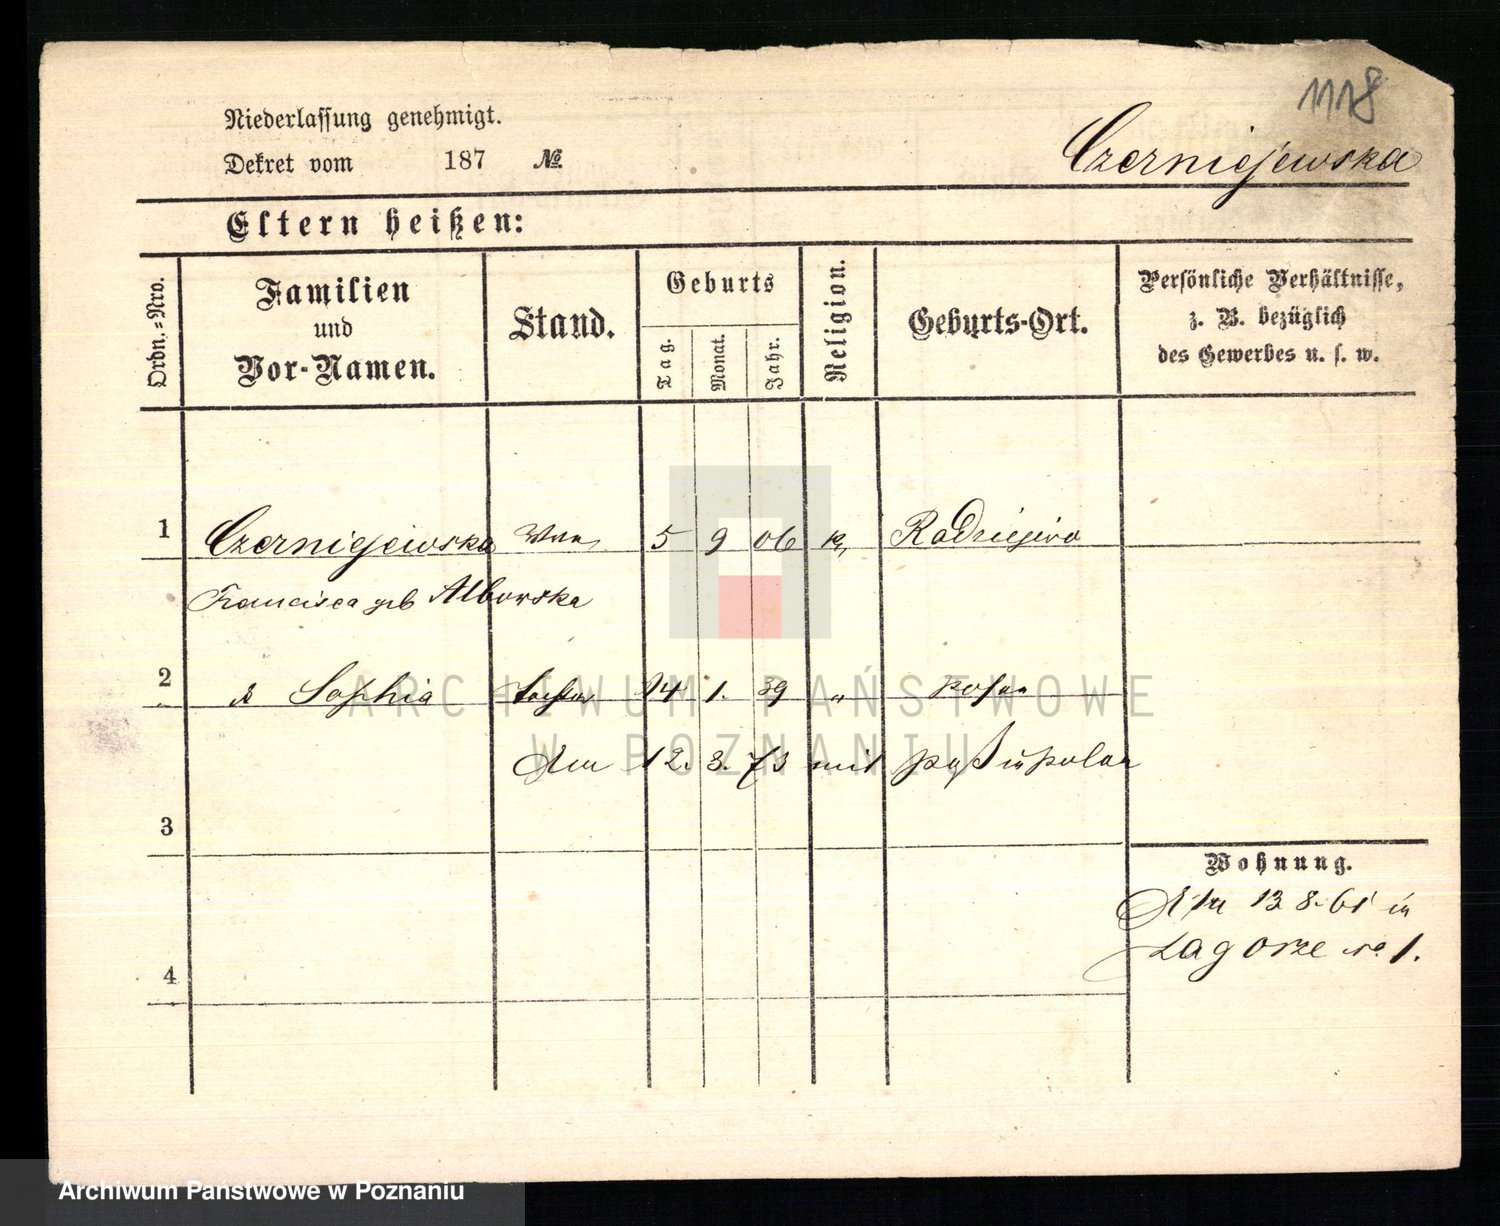 1118
Niederlassung genehmigt.
Dekret vom 187 №
Czerniejewska
Eltern heißen:
Ordn.-Nro.
Familien und Vor-Namen.
Stand.
Geburts
Tag.
Monat.
Jahr.
Religion.
Geburts-Ort.
Persönliche Verhältnisse,
z. B. bezüglich
des Gewerbes u. s. w.
1 Czerniejewska Wwe 5 9 06 k, Radziejewo
Francisca geb Alborska
2 Sophia Tochter 14 1. 39 " Posen
12. 3. 73 mit Paß Polen
3
Wohnung.
13 8. 61 in
Zagorze No 1.
4
ARCHIWUM PAŃSTWOWE
W POZNANIU
Archiwum Państwowe w Poznaniu